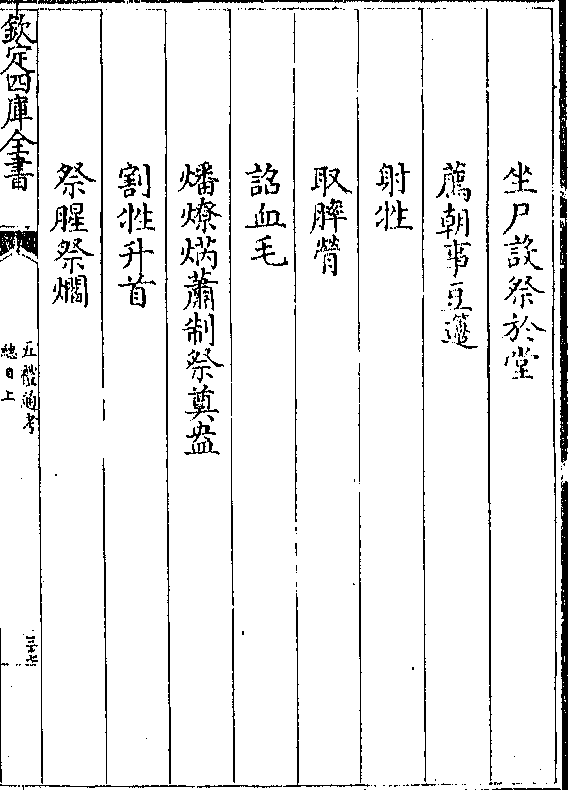 坐尸設祭於堂
薦朝事豆籩
射牲
取膟膋
詔血毛
燔燎焫蕭制祭奠盎
割牲升首
祭腥祭爓
欽定四庫全書
五禮通考
總目上